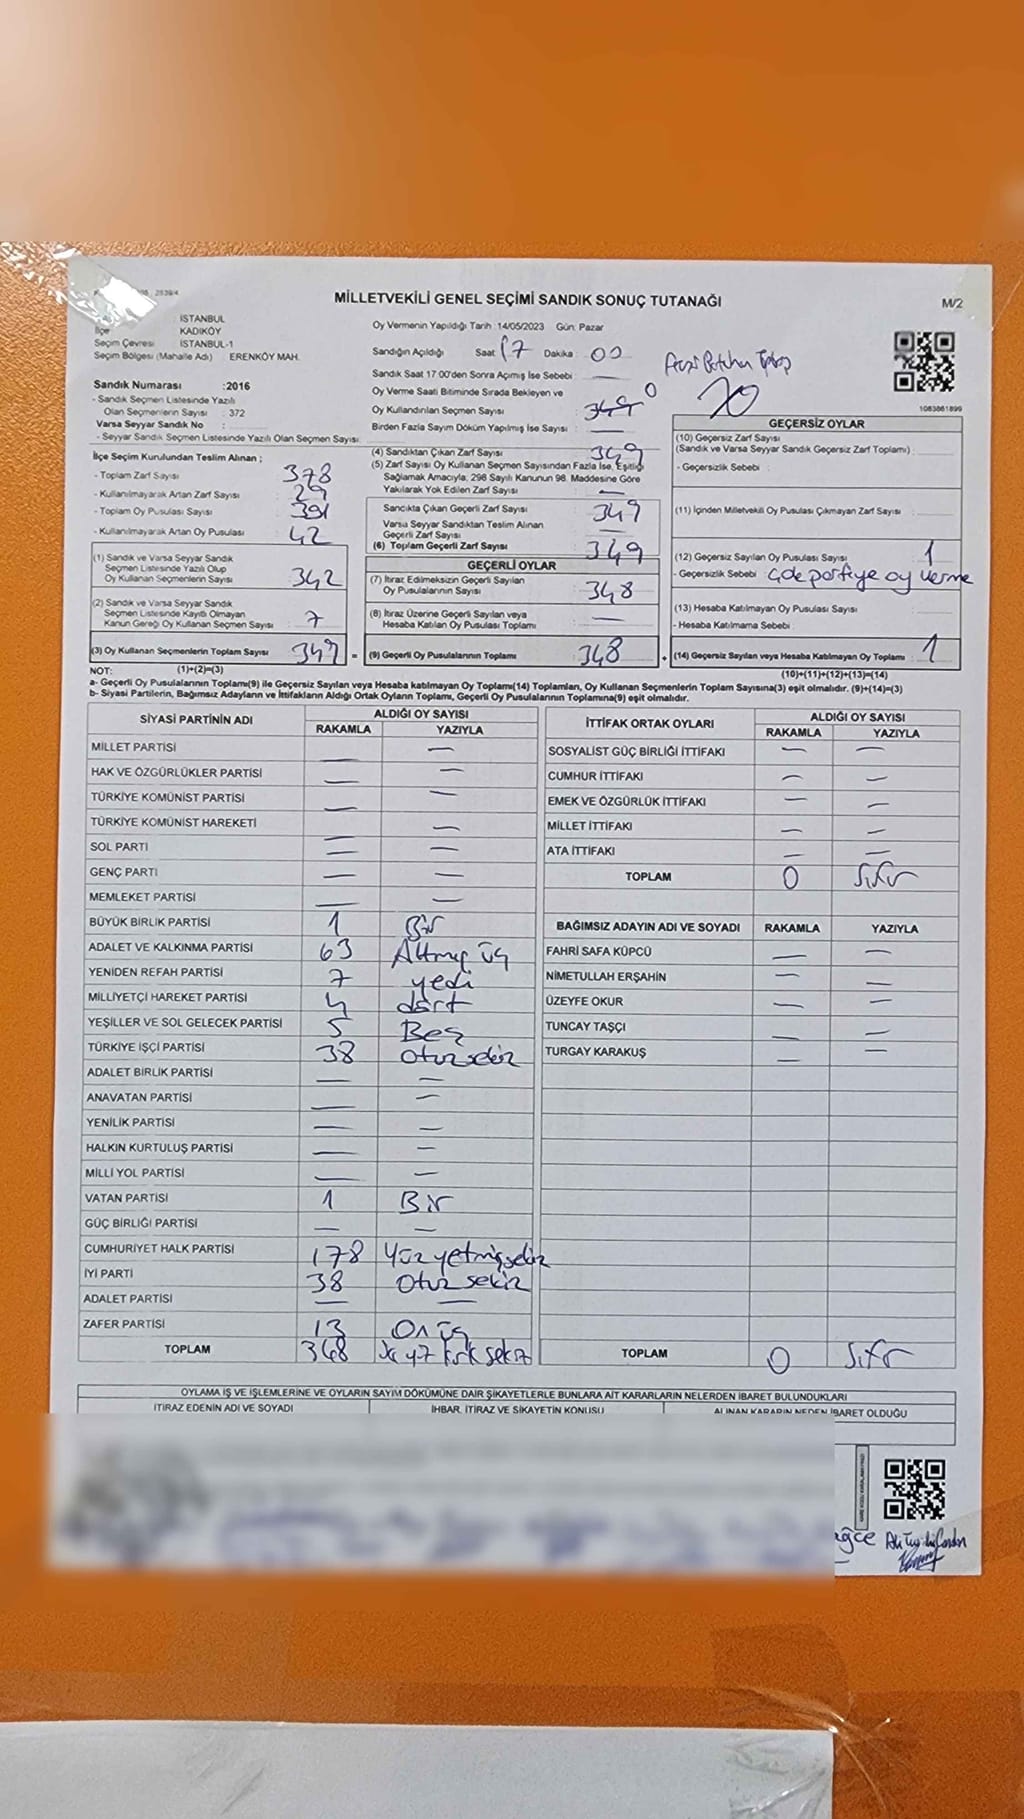 MİLLETVEKİLİ GENEL SEÇİMİ SANDIK SONUÇ TUTANAĞI
M/2
: İSTANBUL
İlçe : KADIKÖY
Seçim Çevresi : İSTANBUL-1
Seçim Bölgesi (Mahalle Adı) : ERENKÖY MAH.
Sandık Numarası :2016
- Sandık Seçmen Listesinde Yazılı
Olan Seçmenlerin Sayısı : 372
Varsa Seyyar Sandık No :
- Seyyar Sandık Seçmen Listesinde Yazılı Olan Seçmen Sayısı :
İlçe Seçim Kurulundan Teslim Alınan ;
- Toplam Zarf Sayısı : 378
- Kullanılmayarak Artan Zarf Sayısı : 29
- Toplam Oy Pusulası Sayısı : 391
- Kullanılmayarak Artan Oy Pusulası : 42
(1) Sandık ve Varsa Seyyar Sandık
Seçmen Listesinde Yazılı Olup
Oy Kullanan Seçmenlerin Sayısı : 342
(2) Sandık ve Varsa Seyyar Sandık
Seçmen Listesinde Kayıtlı Olmayan
Kanun Gereği Oy Kullanan Seçmen Sayısı : 7
(3) Oy Kullanan Seçmenlerin Toplam Sayısı : 349 =
(1)+(2)=(3)
Oy Vermenin Yapıldığı Tarih :14/05/2023 Gün: Pazar
Sandığın Açıldığı Saat : 17 Dakika : 00
Sandık Saat 17:00'den Sonra Açılmış İse Sebebi :
Oy Verme Saati Bitiminde Sırada Bekleyen ve
Oy Kullandırılan Seçmen Sayısı : 349 0
Birden Fazla Sayım Döküm Yapılmış İse Sayısı :
(4) Sandıktan Çıkan Zarf Sayısı : 349
(5) Zarf Sayısı Oy Kullanan Seçmen Sayısından Fazla İse, Eşitliği
Sağlamak Amacıyla, 298 Sayılı Kanunun 98. Maddesine Göre
Yakılarak Yok Edilen Zarf Sayısı : —
Sandıkta Çıkan Geçerli Zarf Sayısı : 349
Varsa Seyyar Sandıktan Teslim Alınan
Geçerli Zarf Sayısı :
(6) Toplam Geçerli Zarf Sayısı : 349
GEÇERLİ OYLAR
(7) İtiraz Edilmeksizin Geçerli Sayılan
Oy Pusulalarının Sayısı : 348
(8) İtiraz Üzerine Geçerli Sayılan veya
Hesaba Katılan Oy Pusulası Toplamı : —
(9) Geçerli Oy Pusulalarının Toplamı : 348 +
1083861899
GEÇERSİZ OYLAR
(10) Geçersiz Zarf Sayısı
(Sandık ve Varsa Seyyar Sandık Geçersiz Zarf Toplamı) :
- Geçersizlik Sebebi :
(11) İçinden Milletvekili Oy Pusulası Çıkmayan Zarf Sayısı :
(12) Geçersiz Sayılan Oy Pusulası Sayısı : 1
- Geçersizlik Sebebi : çde partiye oy verme
(13) Hesaba Katılmayan Oy Pusulası Sayısı :
- Hesaba Katılmama Sebebi :
(14) Geçersiz Sayılan veya Hesaba Katılmayan Oy Toplamı : 1
(10)+(11)+(12)+(13)=(14)
NOT:
a- Geçerli Oy Pusulalarının Toplamı(9) ile Geçersiz Sayılan veya Hesaba katılmayan Oy Toplamı(14) Toplamları, Oy Kullanan Seçmenlerin Toplam Sayısına(3) eşit olmalıdır. (9)+(14)=(3)
b- Siyasi Partilerin, Bağımsız Adayların ve İttifakların Aldığı Ortak Oyların Toplamı, Geçerli Oy Pusulalarının Toplamına(9) eşit olmalıdır.
SİYASİ PARTİNİN ADI ALDIĞI OY SAYISI
RAKAMLA YAZIYLA
MİLLET PARTİSİ — —
HAK VE ÖZGÜRLÜKLER PARTİSİ — —
TÜRKİYE KOMÜNİST PARTİSİ — —
TÜRKİYE KOMÜNİST HAREKETİ — —
SOL PARTİ — —
GENÇ PARTİ — —
MEMLEKET PARTİSİ — —
BÜYÜK BİRLİK PARTİSİ 1 Bir
ADALET VE KALKINMA PARTİSİ 63 Altmış üç
YENİDEN REFAH PARTİSİ 7 yedi
MİLLİYETÇİ HAREKET PARTİSİ 4 dört
YEŞİLLER VE SOL GELECEK PARTİSİ 5 Beş
TÜRKİYE İŞÇİ PARTİSİ 38 otuz sekiz
ADALET BİRLİK PARTİSİ — —
ANAVATAN PARTİSİ — —
YENİLİK PARTİSİ — —
HALKIN KURTULUŞ PARTİSİ — —
MİLLİ YOL PARTİSİ — —
VATAN PARTİSİ 1 Bir
GÜÇ BİRLİĞİ PARTİSİ — —
CUMHURİYET HALK PARTİSİ 178 Yüz yetmiş sekiz
İYİ PARTİ 38 Otuz sekiz
ADALET PARTİSİ — —
ZAFER PARTİSİ 13 On üç
TOPLAM 348 üç yüz kırk sekiz
İTTİFAK ORTAK OYLARI ALDIĞI OY SAYISI
RAKAMLA YAZIYLA
SOSYALİST GÜÇ BİRLİĞİ İTTİFAKI — —
CUMHUR İTTİFAKI — —
EMEK VE ÖZGÜRLÜK İTTİFAKI — —
MİLLET İTTİFAKI — —
ATA İTTİFAKI — —
TOPLAM 0 Sıfır
BAĞIMSIZ ADAYIN ADI VE SOYADI RAKAMLA YAZIYLA
FAHRİ SAFA KÜPCÜ — —
NİMETULLAH ERŞAHİN — —
ÜZEYFE OKUR — —
TUNCAY TAŞÇI — —
TURGAY KARAKUŞ — —
TOPLAM 0 Sıfır
OYLAMA İŞ VE İŞLEMLERİNE VE OYLARIN SAYIM DÖKÜMÜNE DAİR ŞİKAYETLERLE BUNLARA AİT KARARLARIN NELERDEN İBARET BULUNDUKLARI
İTİRAZ EDENİN ADI VE SOYADI İHBAR, İTİRAZ VE ŞİKAYETİN KONUSU ALINAN KARARIN NEDEN İBARET OLDUĞU